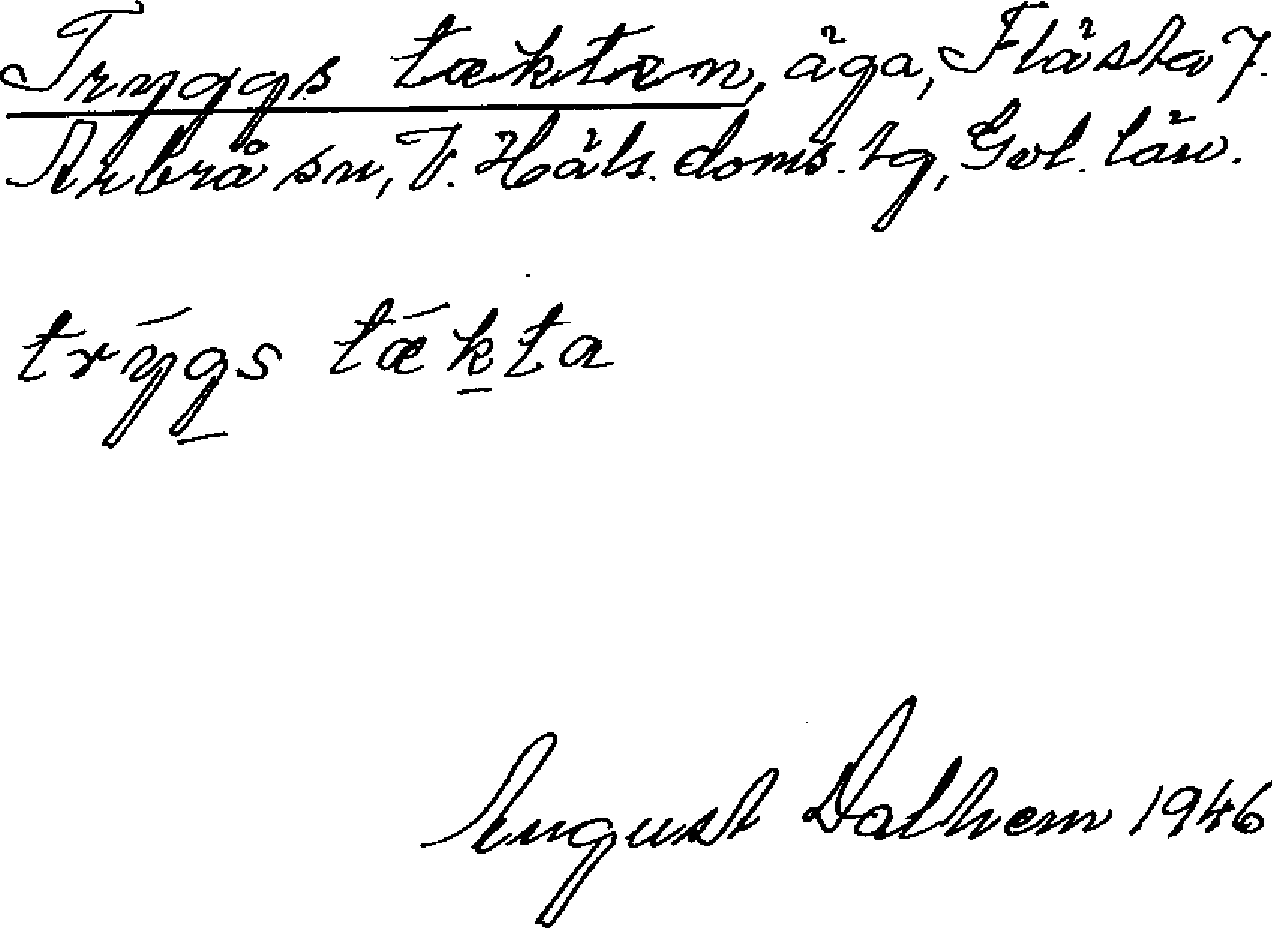 Tryggs tækten, äga, Flästa 7.
Arbrå sn, V. Häls. doms. tg, Gvl. län.
trýgs tǽkta
August Dalhem 1946